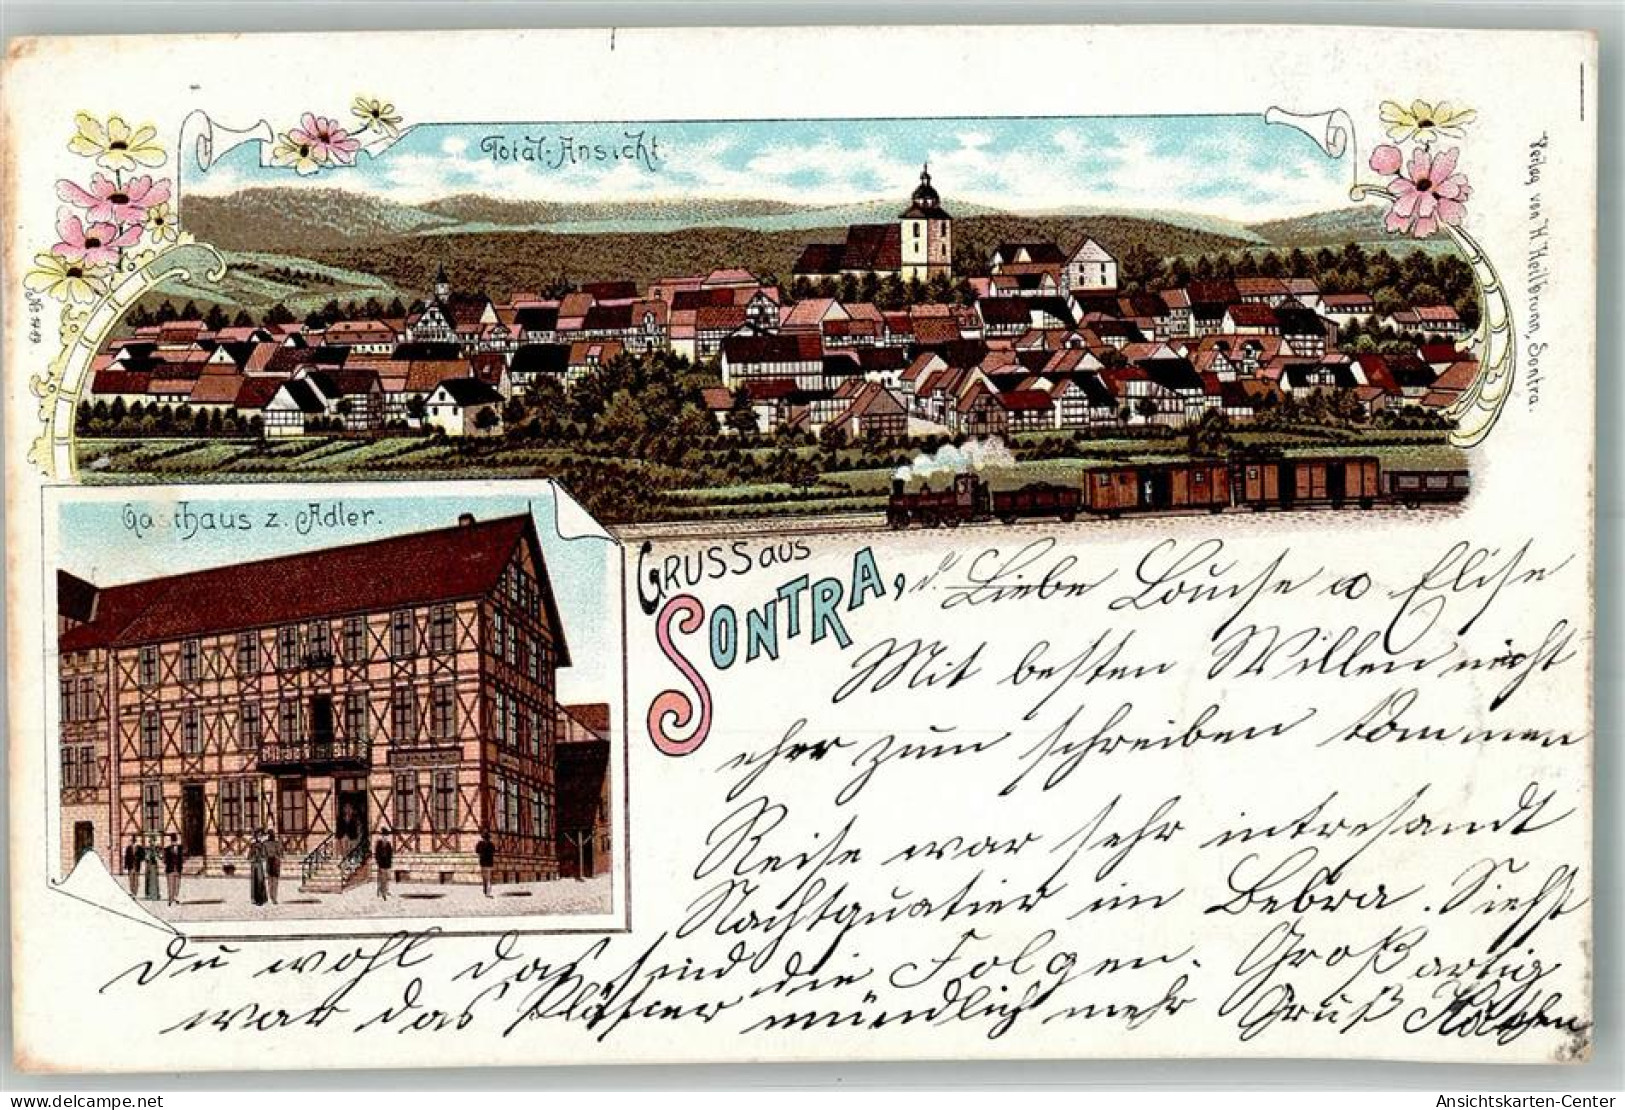 Total-Ansicht.
No 1149.
Verlag von H. Heilbrunn, Sontra.
Gasthaus z. Adler.
GRUSS aus
SONTRA, d.
Liebe Louise u Elise
Mit besten Willen nicht
eher zum schreiben kommen
Reise war sehr intresandt
Nachtquatier im Bebra. Siehst
Du wohl das sind die Folgen. Großartig
war das mündlich mehr Gruß
Ansichtskarten-Center
Ansichtskarten-Center